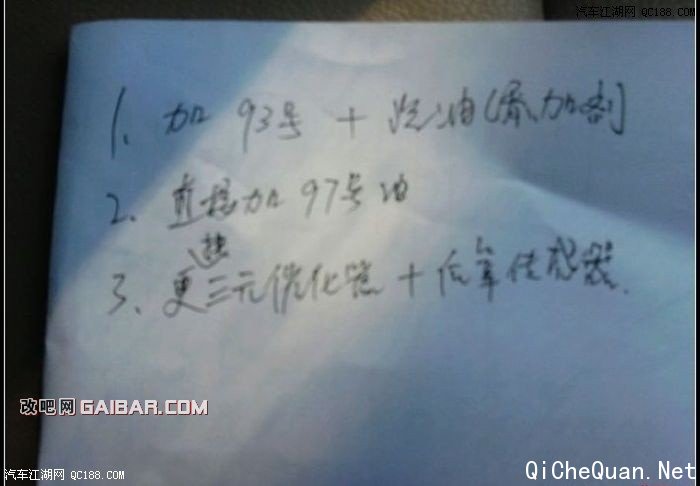 汽车江湖网 QC188.COM
1、加 93号 + 汽油(添加剂]
2、直接加 97号油
换
3、更三元催化器 + 后氧传感器.
改吧网 GAIBAR.COM
汽车江湖网 QC188.COM
QiCheQuan.Net